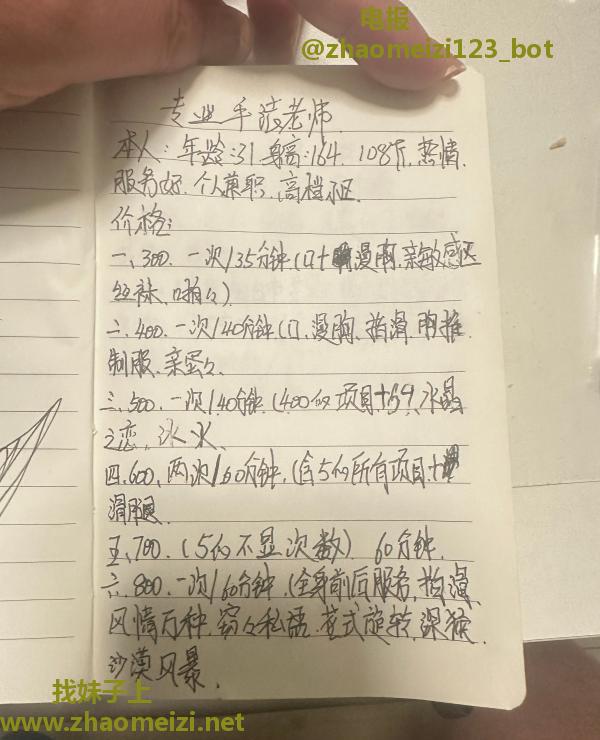 电报
@zhaomeizi123_bot
专业手疲老师
本人：年龄：31 身高：164. 108斤，热情.
服务好. 个人兼职，高档小区.
价格：
一、300. 一次/35分钟（口+漫胸，亲敏感区
丝袜、啪々）
二、400. 一次/40分钟（口、漫胸、指滑、胸推
制服、亲蛋々.
三、500. 一次/40分钟（400的项目+59，水晶
之恋，冰火、
四、600、两次/60分钟，（含5的所有项目+
滑腿.
五、700.（5的不显次数） 60分钟.
六、800. 一次/60分钟（全身前后服务，指滑
风情万种. 窃々私语. 花式旋转，深猴.
沙漠风暴.
找妹子上
www.zhaomeizi.net